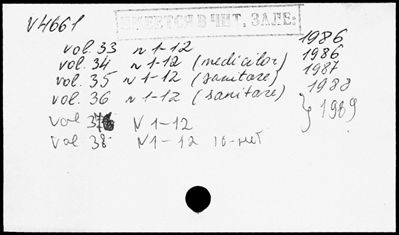 V4661 ИМЕЕТСЯ В ЧИТ. ЗАЛЕ:
vol. 33 N 1-12 1986
vol. 34 N 1-12 (medicilor) 1986
vol. 35 N 1-12 (sanitare) 1987
vol. 36 N 1-12 (sanitare) 1988
vol 37 N 1-12 } 1989
vol 38 N 1-12 10-нет